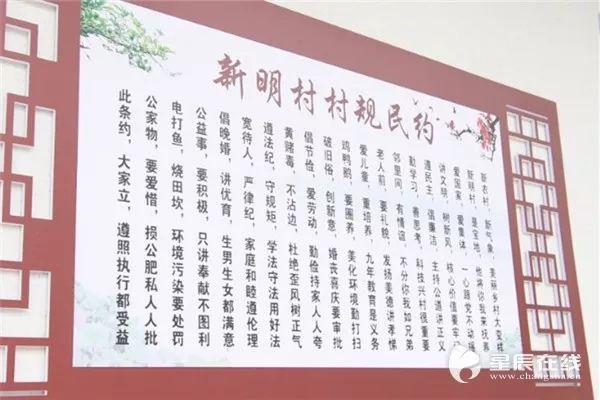 新明村村规民约
新农村，新气象，美丽乡村大变样
新明村，是宝地，他将你我来抚养
爱国家，爱集体，一心跟党不动摇
讲文明，树新风，核心价值要牢记
遵民主，倡廉洁，主持公道讲正义
勤学习，善思考，科技兴村很重要
邻里间，有情谊，不分你我如兄弟
老人前，要礼貌，发扬美德讲孝悌
爱儿童，重培养，九年教育是义务
鸡鸭鹅，要圈养，美化环境勤打扫
破旧俗，创新意，婚丧喜庆要审批
倡节俭，爱劳动，勤俭持家人人夸
黄赌毒，不沾边，杜绝歪风树正气
遵法纪，守规矩，学法守法用好法
宽待人，严律纪，家庭和睦遵伦理
倡晚婚，讲优育，生男生女都满意
公益事，要积极，只讲奉献不图利
电打鱼，烧田坎，环境污染要处罚
公家物，要爱惜，损公肥私人人批
此条约，大家立，遵照执行都受益
星辰在线
www.changsha.cn